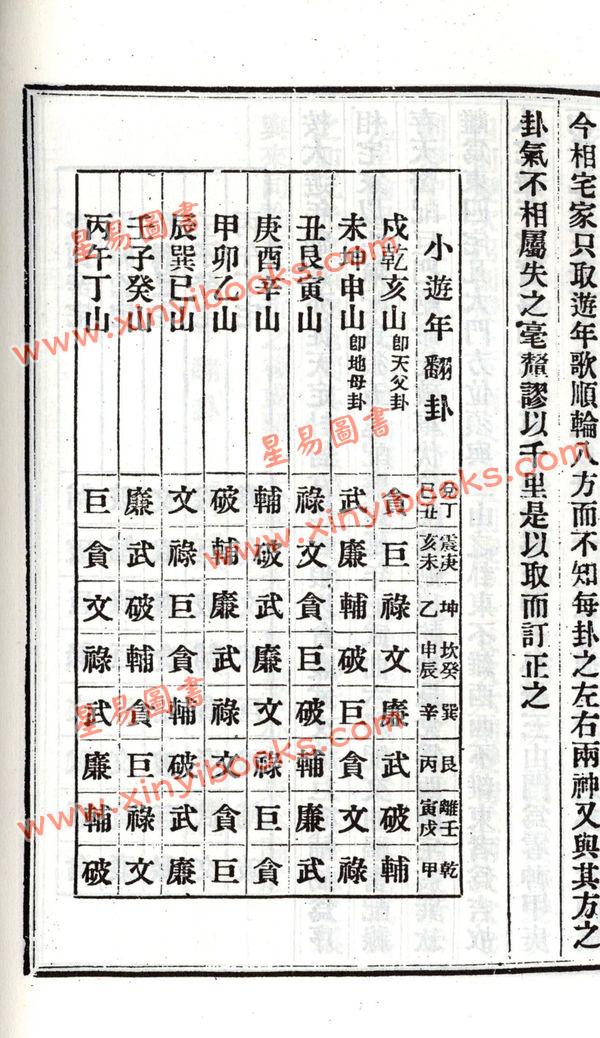 今相宅家只取遊年歌順輪八方而不知每卦之左右兩神又與其方之
卦氣不相屬失之毫釐謬以千里是以取而訂正之
小遊年翻卦 兌丁巳丑 震庚亥未 坤乙 坎癸申辰 巽辛 艮丙 離壬寅戌 乾甲
戌乾亥山即天父卦 貪 巨 祿 文 廉 武 破 輔
未坤申山即地母卦 武 廉 輔 破 巨 貪 文 祿
丑艮寅山 祿 文 貪 巨 破 輔 廉 武
庚酉辛山 輔 破 武 廉 文 祿 巨 貪
甲卯乙山 破 輔 廉 武 祿 文 貪 巨
辰巽巳山 文 祿 巨 貪 輔 破 武 廉
壬子癸山 廉 武 破 輔 貪 巨 祿 文
丙午丁山 巨 貪 文 祿 武 廉 輔 破
星易圖書
www.xinyibooks.com
星易圖書
www.xinyibooks.com
星易圖書
www.xinyibooks.com